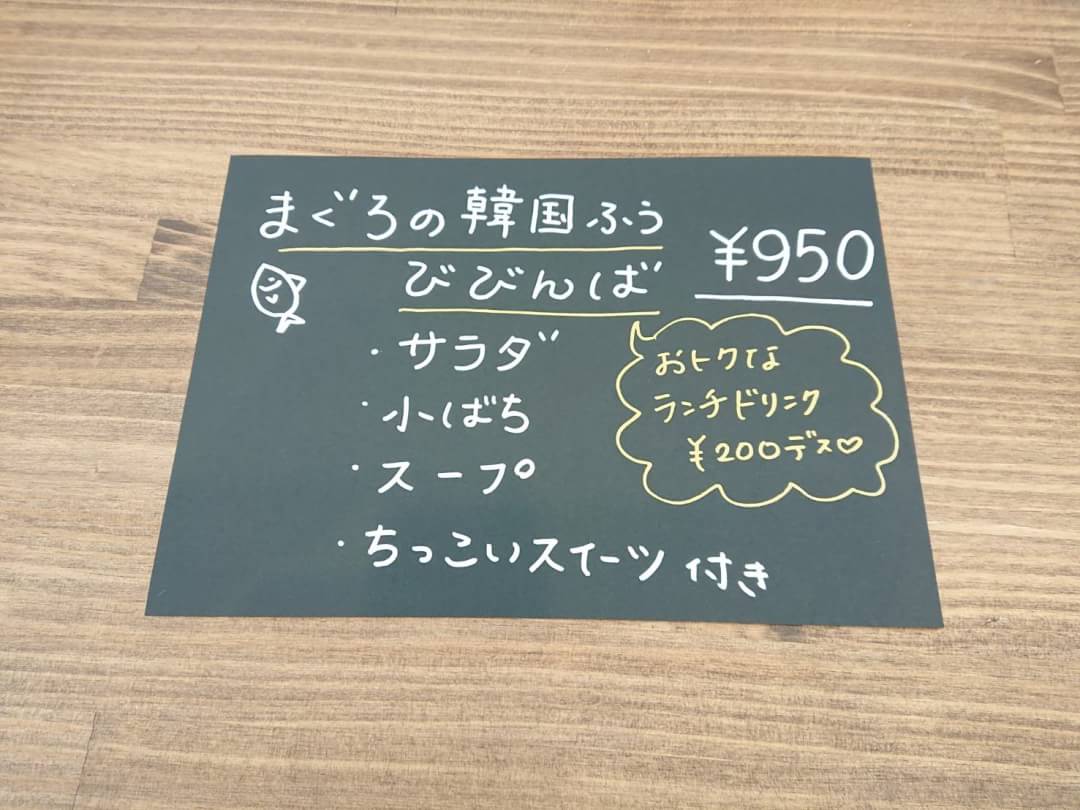 まぐろの韓国ふう
びびんば
¥950
・サラダ
・小ばち
・スープ
・ちっこいスイーツ 付き
おトクな
ランチドリンク
¥200デス♡